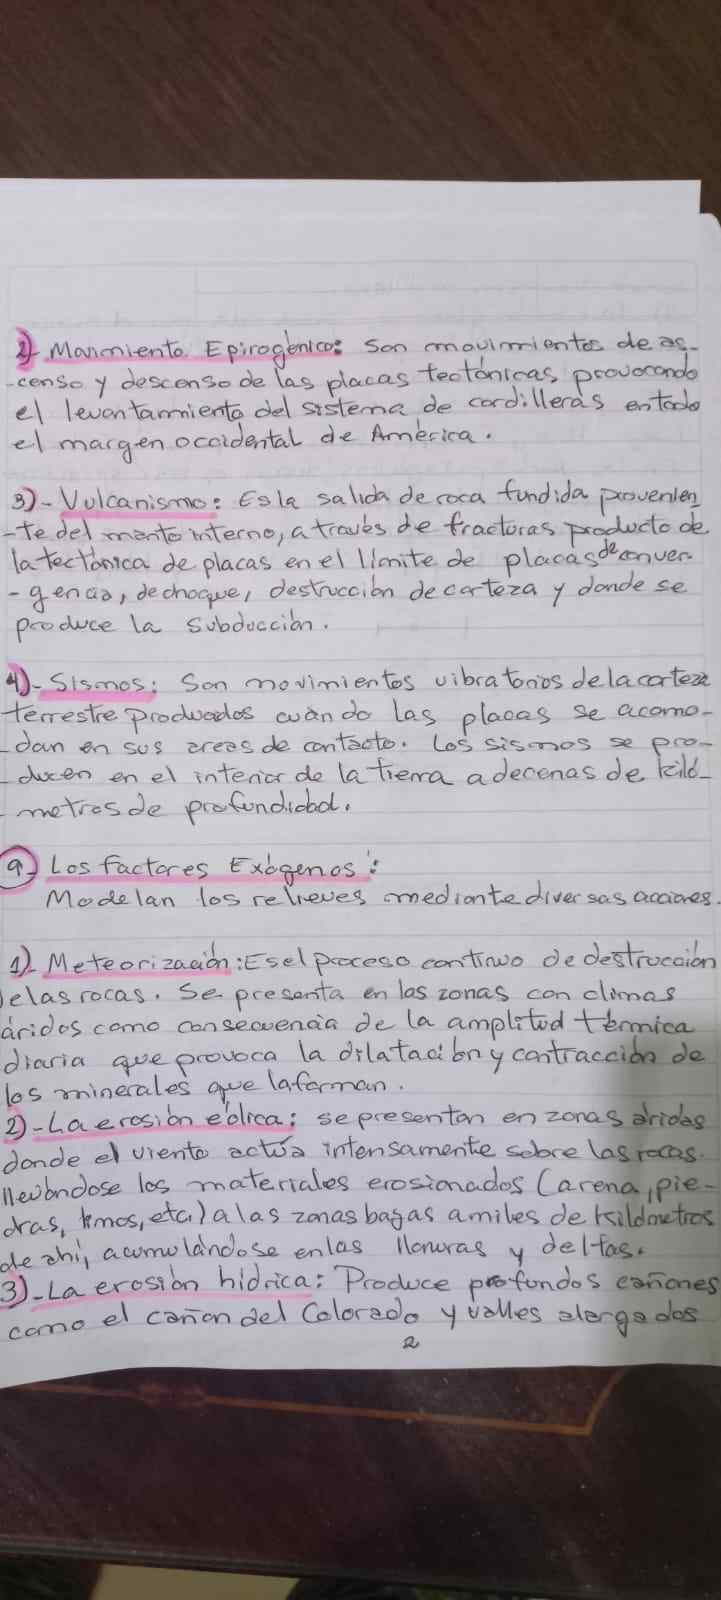 2)- Movimiento Epirogénico: Son movimientos de as-
-censo y descenso de las placas tectónicas, provocando
el levantamiento del sistema de cordilleras en todo
el margen occidental de América.
3)- Vulcanismo: Es la salida de roca fundida provenien
-te del manto interno, a través de fracturas producto de
la tectónica de placas en el límite de placas de conver-
- gencia, de choque, destrucción de corteza y donde se
produce la subducción.
4)- Sismos: Son movimientos vibratorios de la corteza
terrestre producidos cuándo las placas se acomo-
- dan en sus areas de contacto. Los sismos se pro-
- ducen en el interior de la tierra a decenas de kiló-
- metros de profundidad.
9) Los factores Exógenos:
Modelan los relieves mediante diversas acciones.
1)- Meteorización: Es el proceso continuo de destrucción
de las rocas. Se presenta en las zonas con climas
áridos como consecuencia de la amplitud térmica
diaria que provoca la dilatación y contracción de
los minerales que la forman.
2)- La erosión eólica: se presentan en zonas áridas
donde el viento actúa intensamente sobre las rocas.
llevándose los materiales erosionados (arena, pie-
dras, limos, etc.) a las zonas bajas a miles de kilómetros
de ahí, acumulándose en las llanuras y deltas.
3)- La erosión hídrica: Produce profundos cañones
como el cañon del Colorado y valles alargados
2